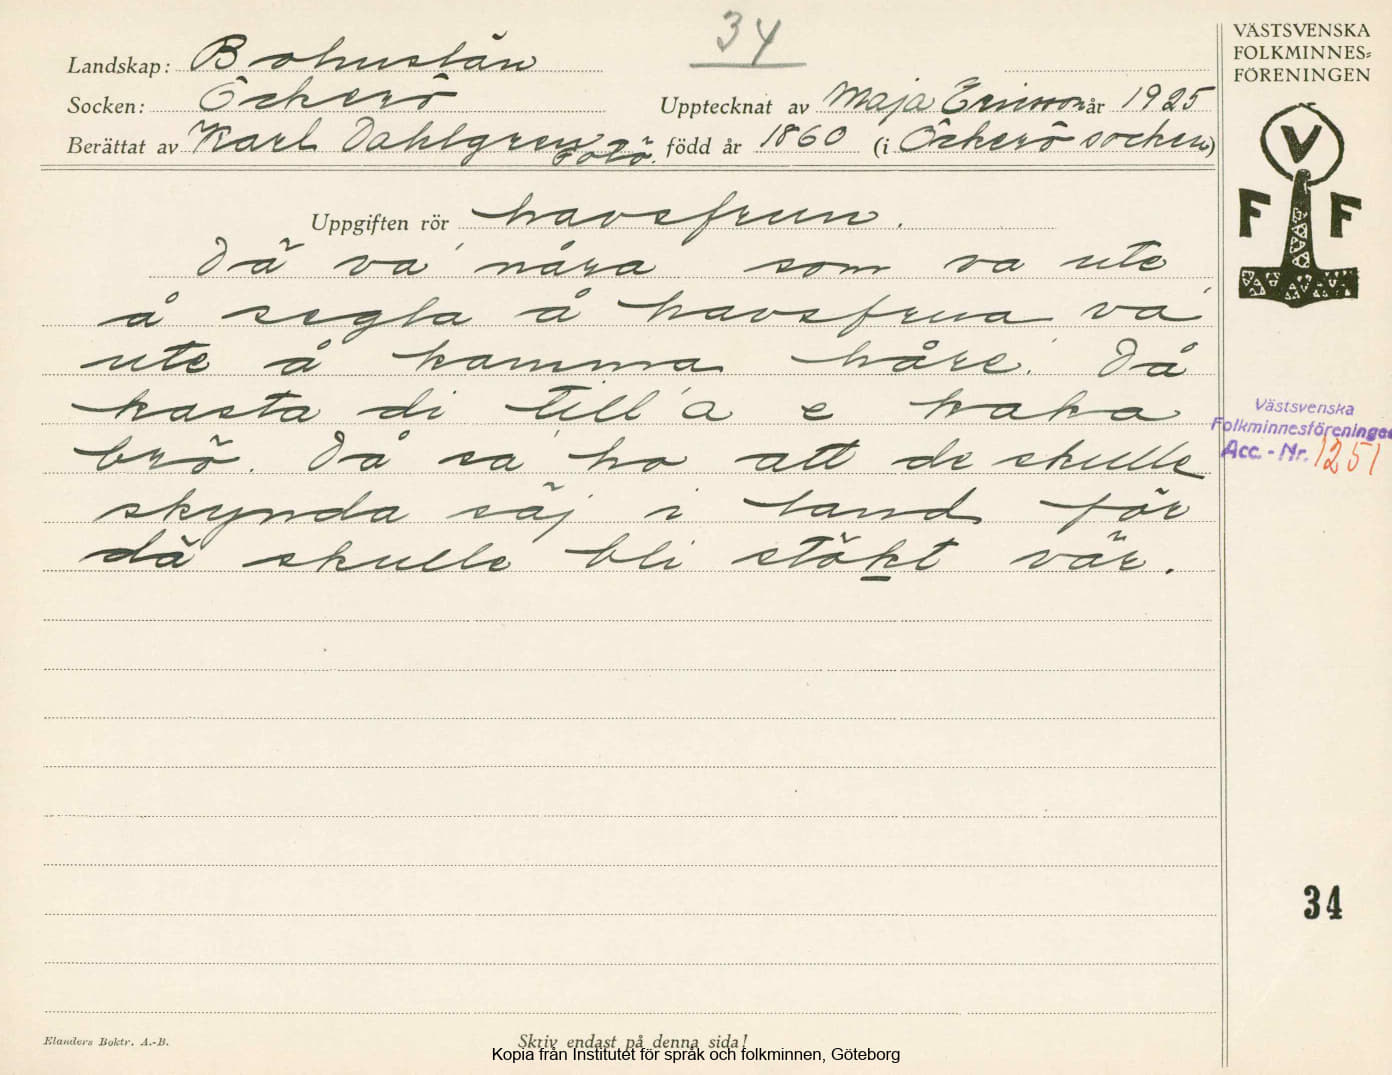 34
Landskap: Bohuslän
Socken: Öckerö
Upptecknat av Maja Ericsson år 1925
Berättat av Karl Dahlgren Fotö. född år 1860 (i Öckerö socken)
VÄSTSVENSKA
FOLKMINNES=
FÖRENINGEN
V
F F
Uppgiften rör havsfrun.
Dä va' nåra som va ute
å segla å havsfrua va'
ute å kamma håre'. Då
kasta di till'a e kaka
brö. Då sa' ho att de skulle
skynda säj i land för
dä skulle bli stökt vär.
Västsvenska
Folkminnesföreningen
Acc. - Nr. 1251
34
Elanders Boktr. A.-B.
Skriv endast på denna sida!
Kopia från Institutet för språk och folkminnen, Göteborg